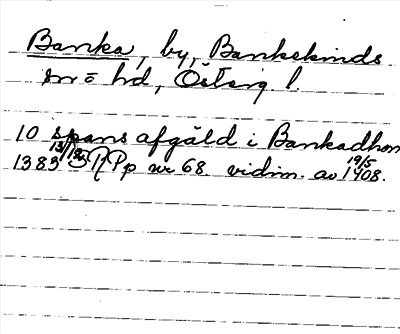 Banka, by, Bankekinds
sn o hd, Österg l.
10 spans afgäld i Bankadhom
1383 13/12 RPp nr 68 vidim. av 19/5 1408.